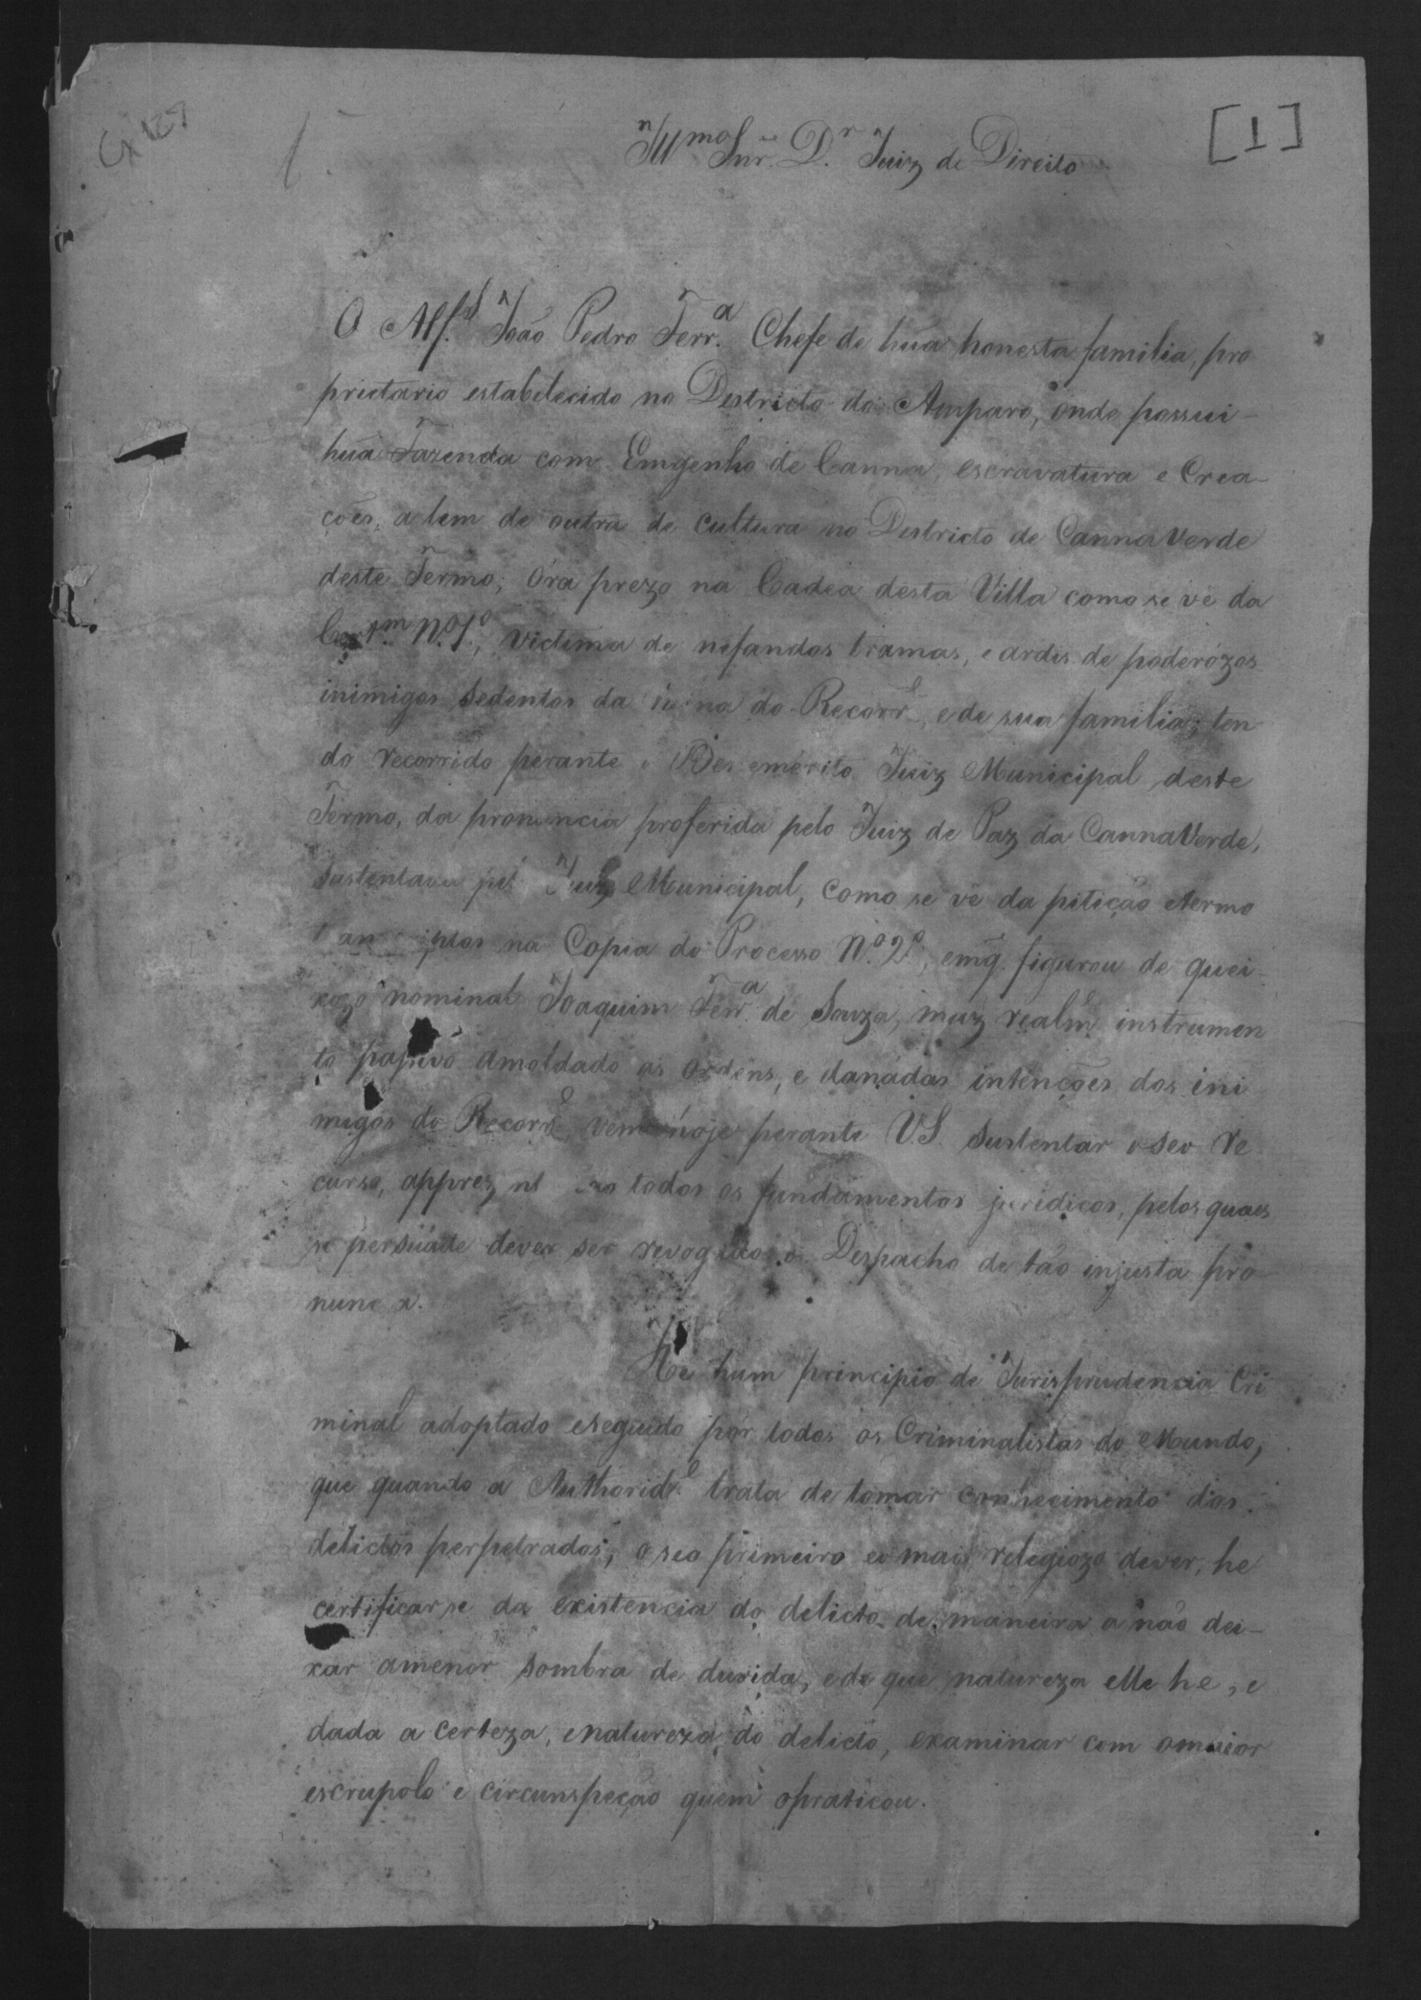 Cx 127
[1]
Illmo Snr. Dr. Juiz de Direito
O Alf.s João Pedro Ferr.a Chefe de hũa honesta familia, pro
prietario estabelecido no Districto do Amparo, onde possui-
hũa Fazenda com Emgenho de Canna, escravatura e Crea-
ções, a lem de outra de cultura no Districto de Canna Verde
deste Termo; Ora prezo na Cadea desta Villa como se vê da
N.º 1.º, victima de nefandos tramas, e ardis de poderózos
inimigos Sedentos da ruina do Recorr.e, e de sua familia; ten
do recorrido perante o Benemérito Juiz Municipal deste
Termo, da pronuncia proferida pelo Juiz de Paz da Canna Verde,
Sustentada pelo Juiz Municipal, como se vê da pitição etermo
na Copia do Processo N.º 2.º, emq. figurou de quei-
xozo nominal Joaquim Ferr.a de Souza, maz realm.e instrumen
to passivo amoldado as ordens, e danádas intenções dos ini
migos do Recorr.e vem hoje perante V.S. sustentar o seo re
curso, todos os fundamentos juridicos, pelos quaes
se persuade dever ser revogado o Despacho de tão injusta pro
nuncia.
He hum principio de Jurisprudencia Cri
minal adoptado eseguido por todos os Criminalistas do Mundo,
que quando a Authorid.e trata de tomar conhecimento dos
delictos perpetrados, o seo primeiro eo mais relegiozo dever, he
certificarse da existencia do delicto de maneira a não dei-
xar amenor sombra de duvida, e de que natureza elle he, e
dada a certeza, enatureza do delicto, examinar com omaior
escrupolo e circunspeção quem opraticou.